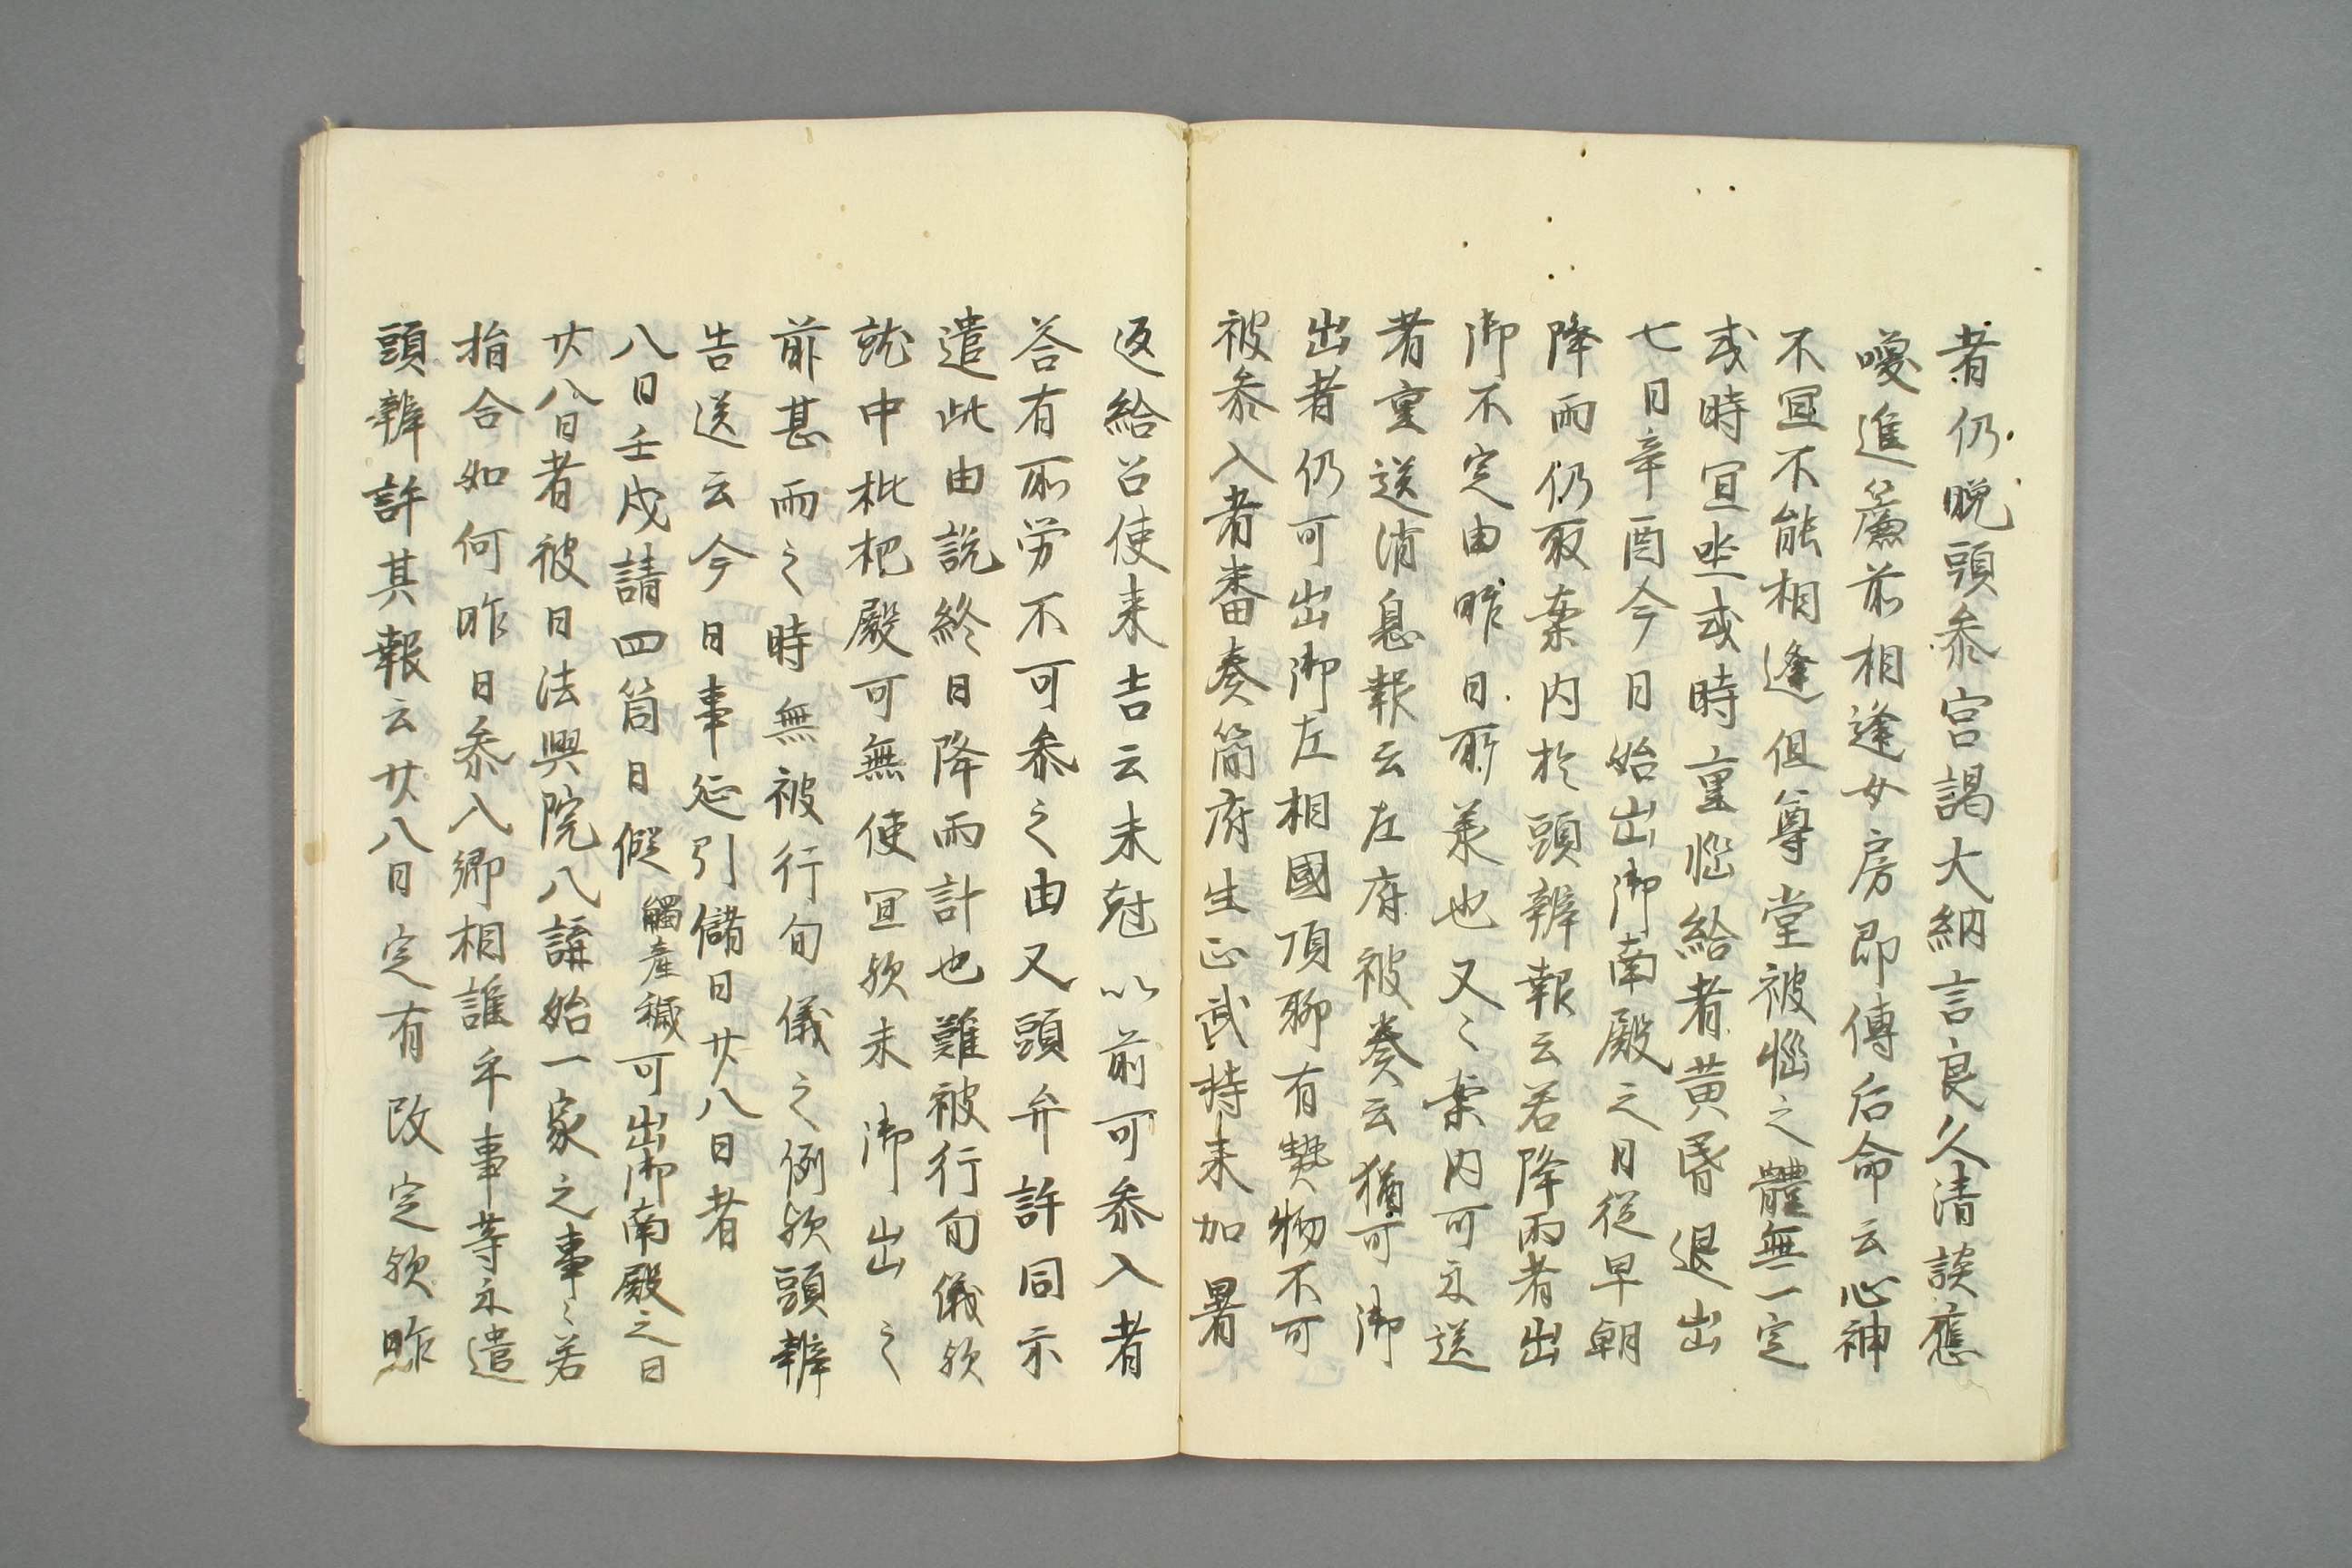 者仍晩頭参宮謁大納言良久清談應
喚進簾前相逢女房即傳后命云心神
不宜不能相逢但尊堂被悩之體無一定
或時宜坐或時重悩給者黄昏退出
七日辛酉今日始出御南殿之日従早朝
降雨仍取案内於頭辨報云若降雨者出
御不定由昨日所美也又々案内可示送
者重送消息報云左府被奏云猶可御
出者仍可出御左相國頂聊有熱物不可
被参入者番奏簡府生正武持来加署
返給召使来告云未尅以前可参入者
答有所労不可参之由又頭弁許同示
遣此由説終日降雨計也難被行旬儀欤
就中枇杷殿可無使宜欤未御出之
前甚雨之時無被行旬儀之例欤頭辨
告送云今日事延引儲日廿八日者
八日壬戌請四箇日假觸産穢可出御南殿之日
廿八日者彼日法興院八講始一家之事々若
指合如何昨日参入卿相誰乎事等示遣
頭辨許其報云廿八日定有改定欤昨